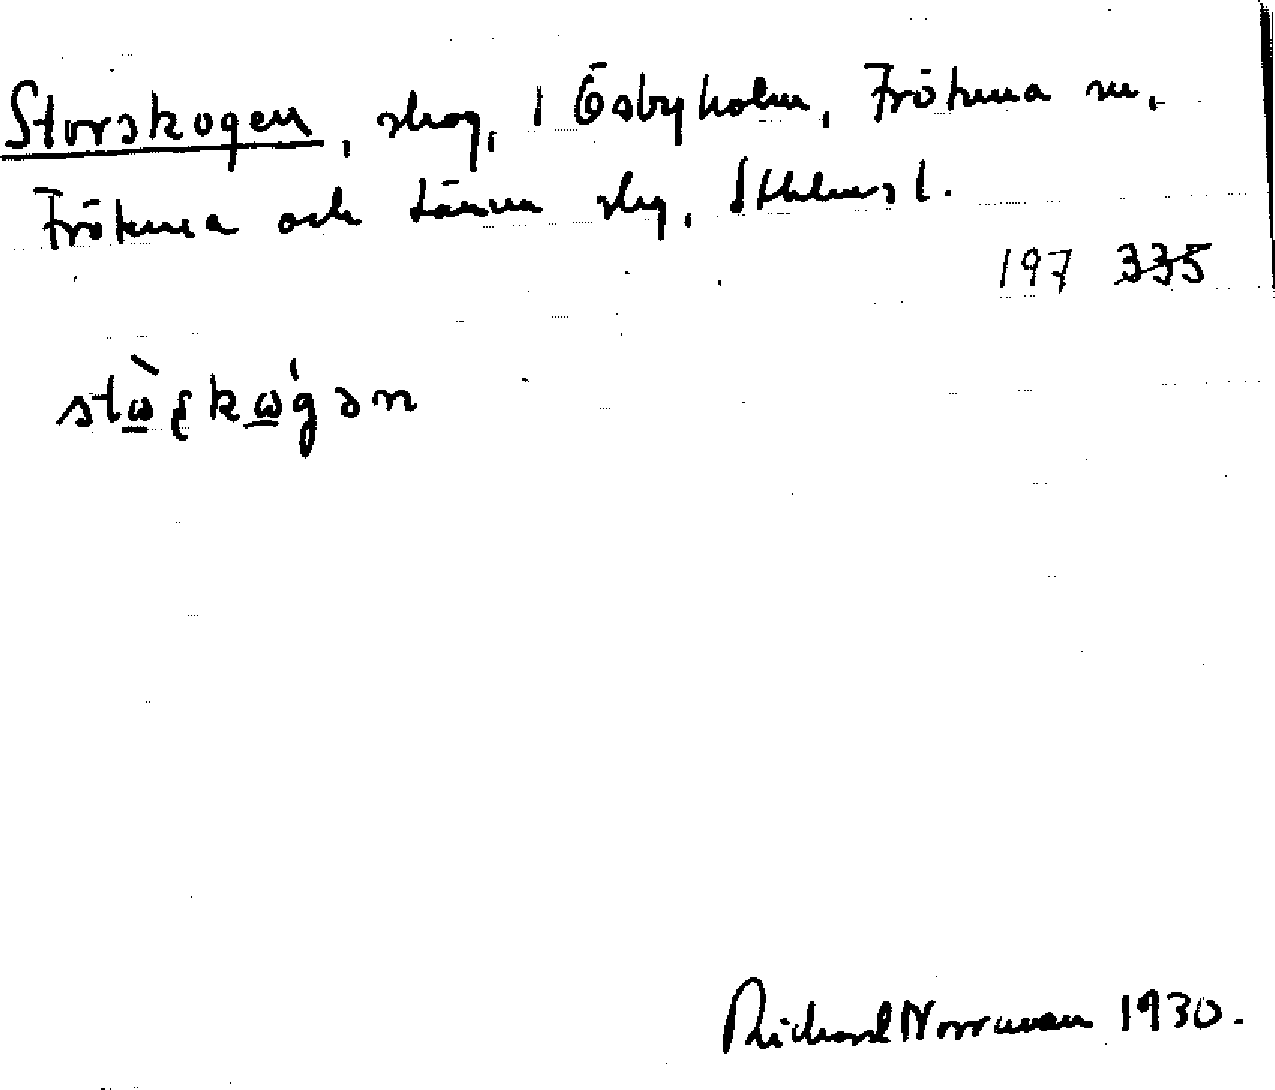 Storskogen, skog, 1 Ösbyholm, Frötuna sn,
Frötuna och Länna skg, Sthlms l.
197 335
stὼ̲ʂkώ̲gən
Richard Norrman 1930.